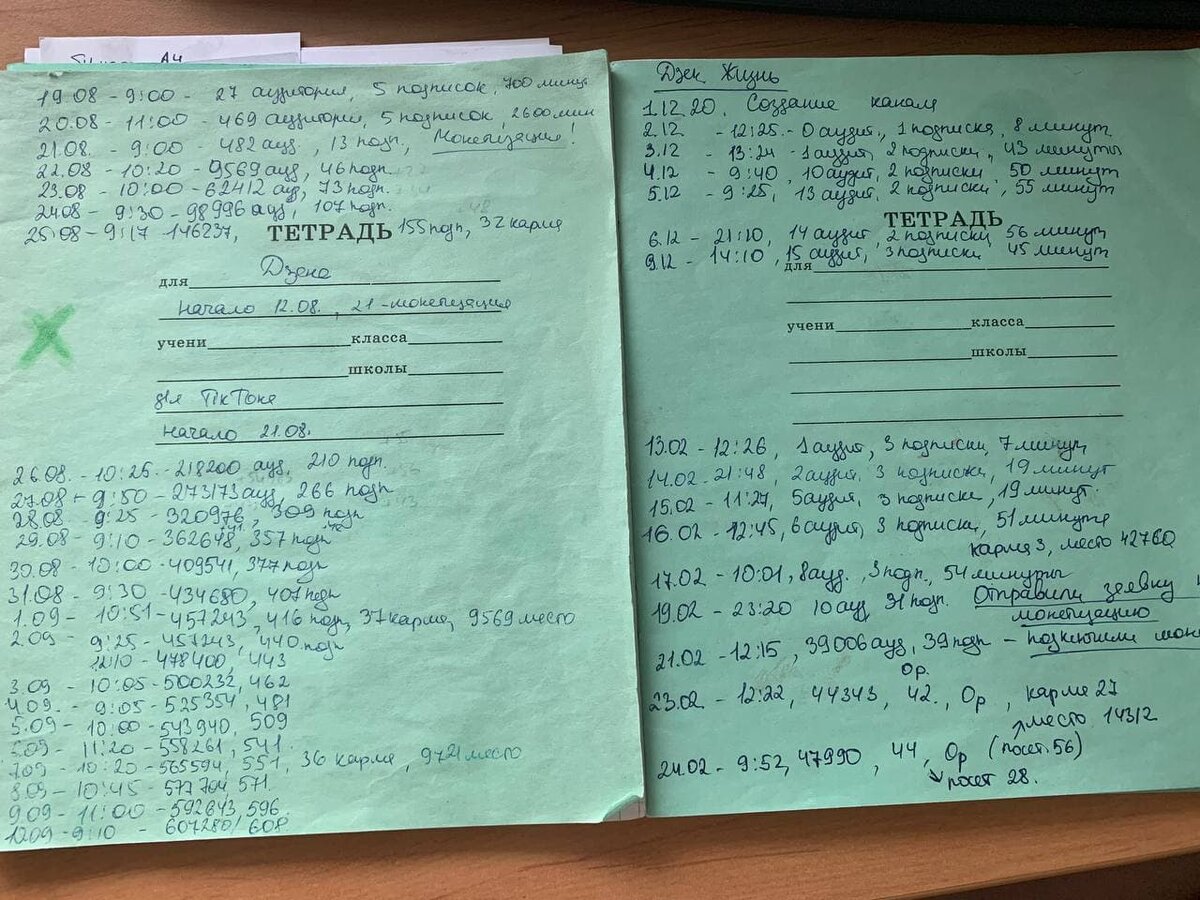 19.08 - 9:00 - 27 аудитория, 5 подписок, 700 минут
20.08 - 11:00 - 469 аудитория, 5 подписок, 2600 мин
21.08. - 9:00 - 482 ауд, 13 подп, Монетизация!
22.08 - 10:20 - 9569 ауд, 46 подп.
23.08 - 10:00 - 62412 ауд, 73 подп.
24.08 - 9:30 - 98996 ауд, 107 подп.
25.08 - 9:17 146237, 155 подп, 32 карма
ТЕТРАДЬ
для Дзена
начало 12.08., 21 - монетизация
учени класса
школы
для ТікТока
начало 21.08.
26.08. - 10:25 - 218200 ауд, 210 подп.
27.08 - 9:50 - 273173 ауд, 266 подп
28.08 - 9:25 - 320976, 309 подп
29.08 - 9:10 - 362648, 357 подп
30.08 - 10:00 - 409541, 377 подп
31.08 - 9:30 - 434680, 407 подп
1.09 - 10:51 - 457243, 416 подп, 37 карма, 9569 место
2.09 - 9:25 - 457243, 440 подп
- 478400, 443
3.09 - 10:05 - 500232, 462
4.09. - 9:05 - 525354, 481
5.09 - 10:00 - 543940, 509
6.09 - 11:20 - 558261, 541.
7.09 - 10:20 - 565594, 551, 36 карма, 9721 место
8.09 - 10:45 - 577704, 571.
9.09 - 11:00 - 592643, 596
12.09 - 9:10 - 607280/608
Дзен Жизнь
1.12.20. Создание канала
2.12 - 12:25 - 0 аудит., 1 подписка, 8 минут
3.12 - 13:24 - 1 аудит, 2 подписки, 43 минуты
4.12 - 9:40, 10 аудит, 2 подписки, 50 минут
5.12 - 9:25, 13 аудит, 2 подписки, 55 минут
ТЕТРАДЬ
6.12 - 21:10, 14 аудит, 2 подписки, 56 минут
9.12 - 14:10, 15 аудит, 3 подписки 45 минут
для
учени класса
школы
13.02 - 12:26, 1 аудит, 3 подписки, 7 минут
14.02 - 21:48, 2 аудит, 3 подписки, 19 минут
15.02 - 11:27, 5 аудит, 3 подписки, 19 минут.
16.02 - 12:45, 6 аудит, 3 подписки, 51 минута
карма 3, место 42760
17.02 - 10:01, 8 ауд., 3 подп., 54 минуты
19.02 - 23:20 10 ауд 31 подп. Отправили заявку
монетизацию
21.02 - 12:15, 39006 ауд, 39 подп - подключили
Ор.
23.02 - 12:22, 44343, 42., Ор, карма 27
место 14312
24.02 - 9:52, 47990, 44, Ор (посет. 56)
посет 28.